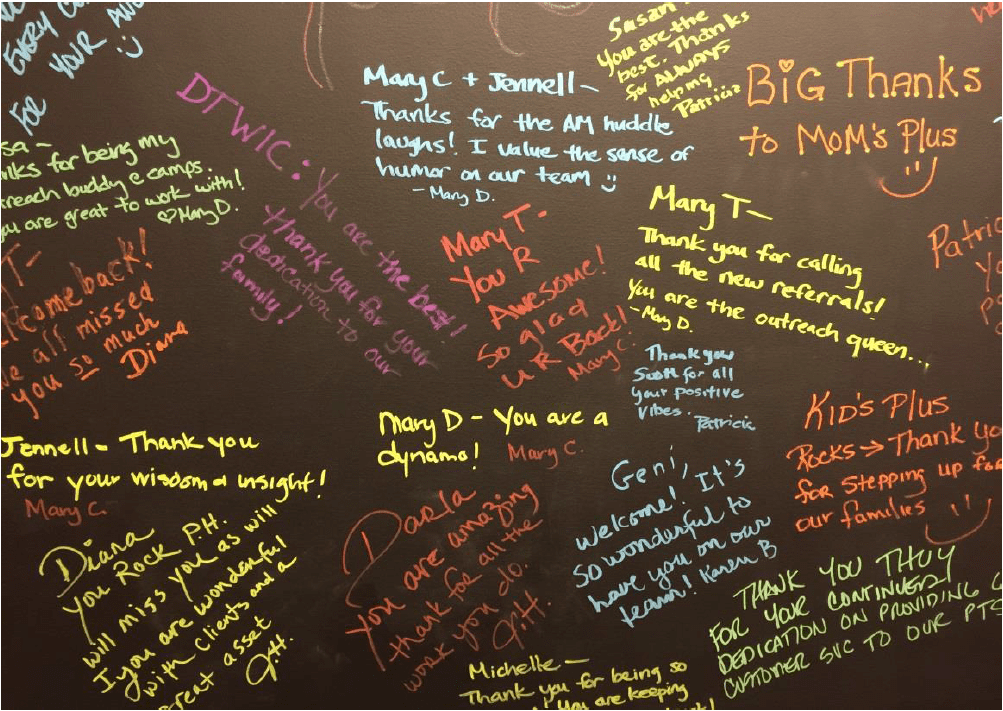 EVERY
YOUR
FOR
Susan
You are the
best. Thanks
for ALWAYS
helping
Patricia
BiG Thanks
to MoM's Plus
Mary C + Jennell –
Thanks for the AM huddle
laughs! I value the sense of
humor on our team
– Mary D.
DTWIC: You are the best!
Thank you for your
dedication to our
family!
for being my
buddy @ camps.
are great to work with!
Mary D.
Mary T-
You R
Awesome!
So glad
U R Back!
Mary C.
Mary T –
Thank you for calling
all the new referrals!
You are the outreach queen...
– Mary D.
T-
come back!
all missed
you so much
Diana
Thank you
for all
your positive
vibes.
Patricia
KiD's Plus
Rocks → Thank
for stepping up for
our families
Jennell – Thank you
for your wisdom & insight!
Mary C.
Mary D – You are a
dynamo!
Mary C.
Geni,
Welcome! It's
so wonderful to
have you on our
team! Karen B
Diana
you Rock P.H.
will miss you as will
I you are wonderful
with clients and a
great asset
Darla
you are amazing
thank for all the
work you do.
THANK YOU THUY
FOR YOUR CONTINUED
DEDICATION ON PROVIDING
CUSTOMER SVC TO OUR
Michelle –
Thank you for being so
You are keeping